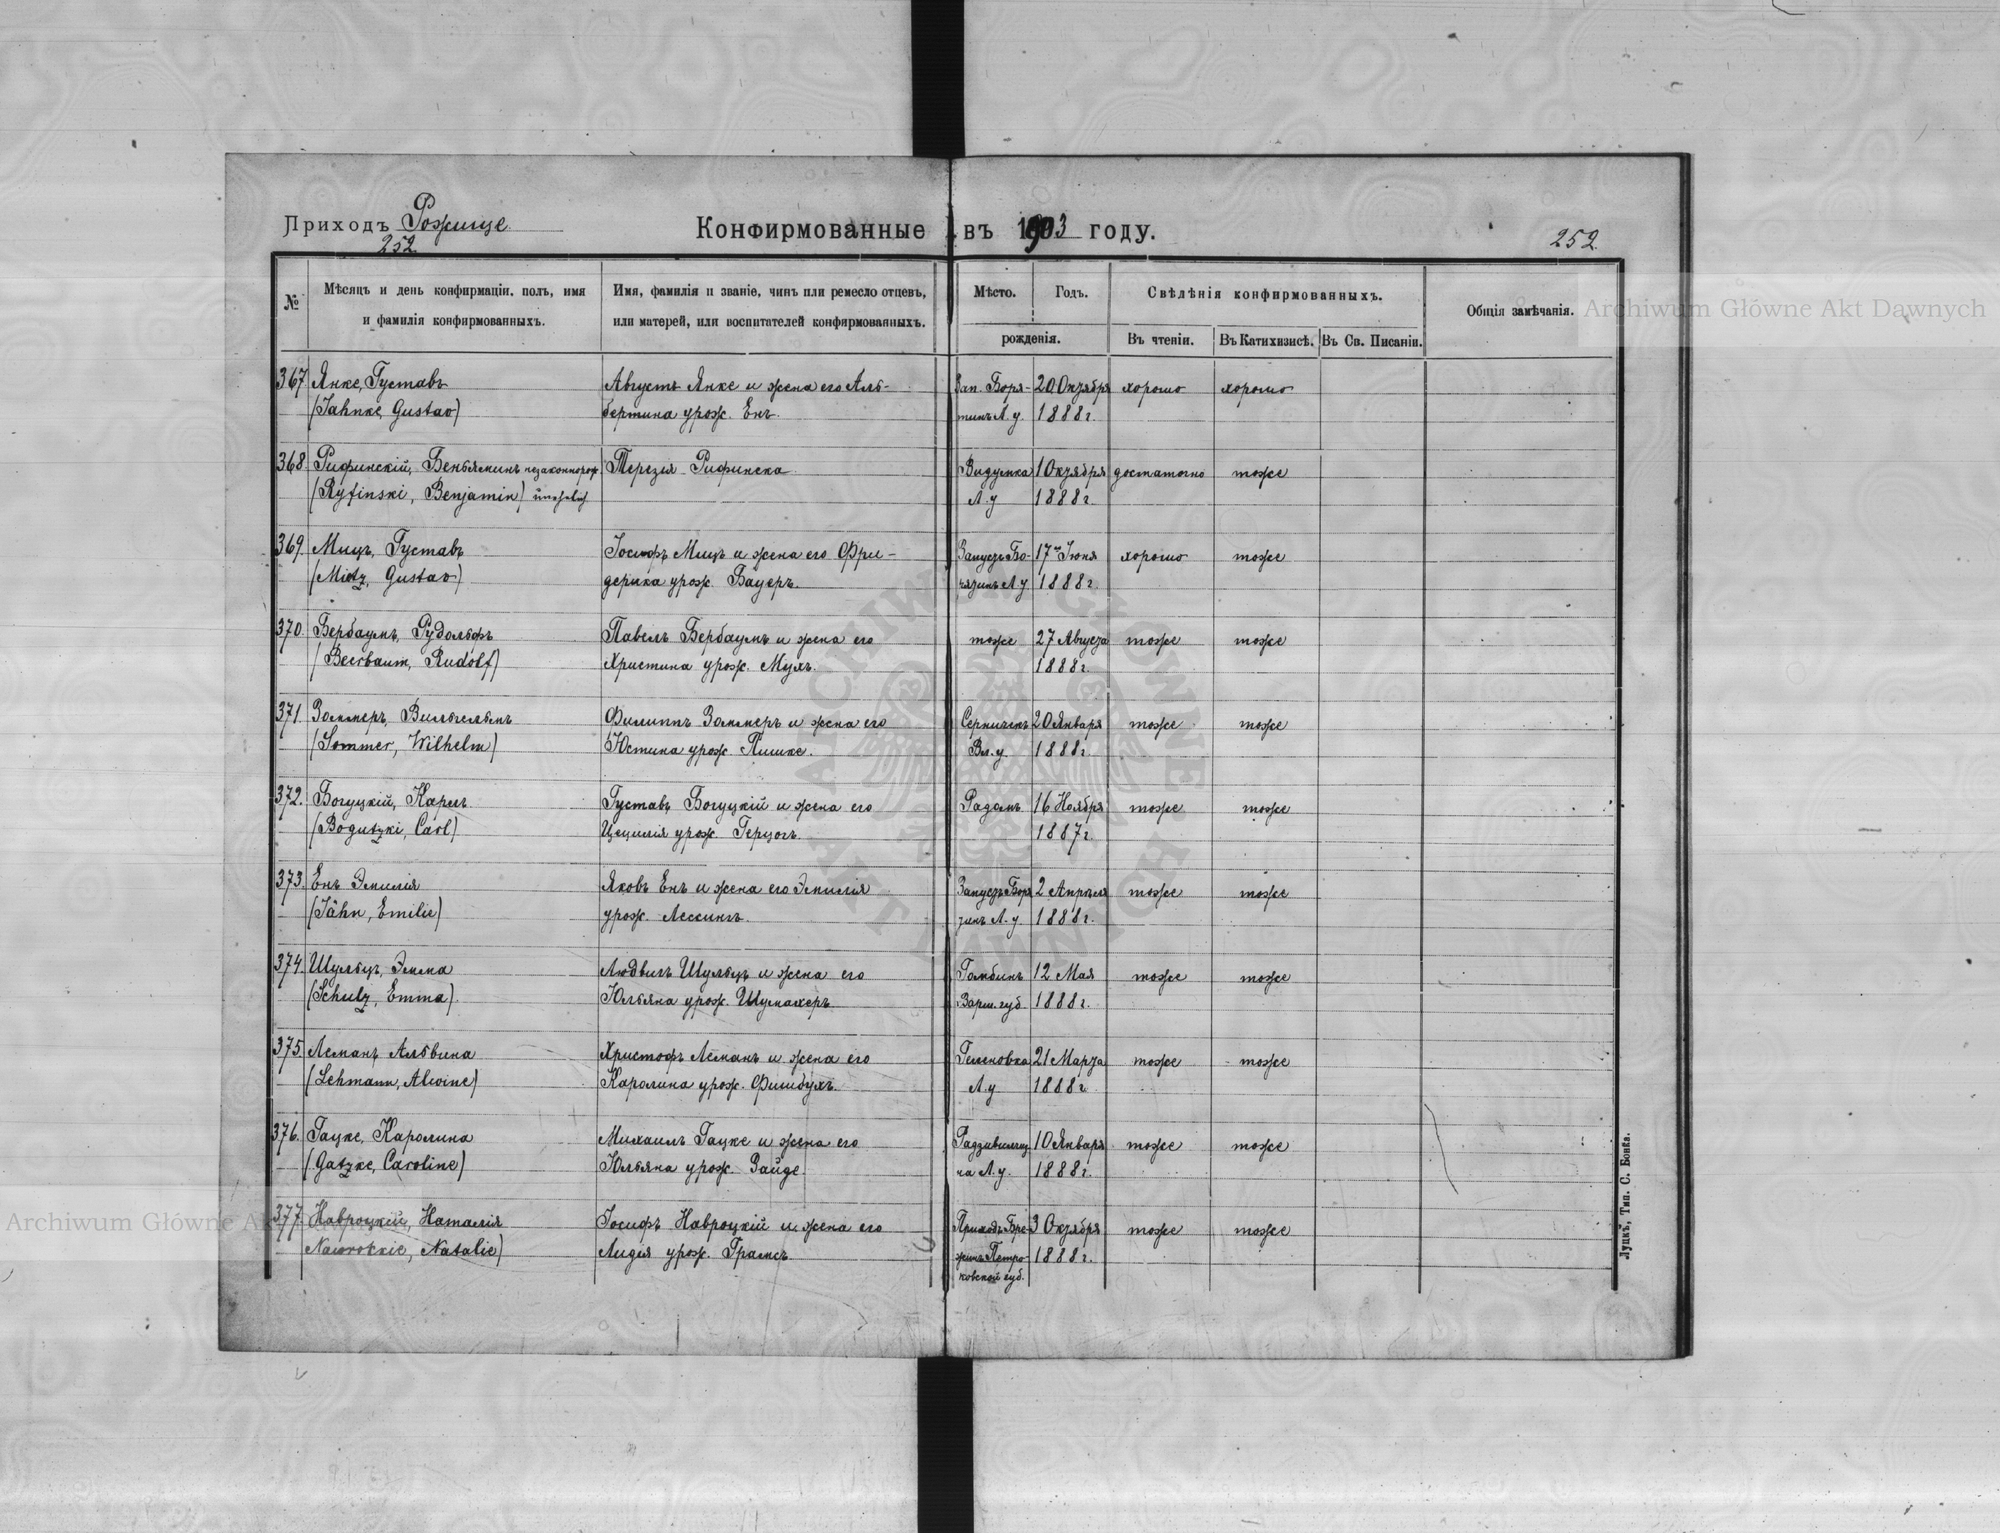 Приходъ Рожище
252
Конфирмованные въ 1903 году.
252.
№
Мѣсяцъ и день конфирмаціи, полъ, имя
и фамилія конфирмованныхъ.
Имя, фамилія и званіе, чинъ или ремесло отцевъ,
или матерей, или воспитателей конфирмованныхъ.
Мѣсто.
Годъ.
рожденія.
Свѣдѣнія конфирмованныхъ.
Въ чтеніи.
Въ Катихизисѣ.
Въ Св. Писаніи.
Общія замѣчанія.
Archiwum Główne Akt Dawnych
367 Янке, Густавъ Августъ Янке и жена его Аль- Зап. Боря- 20 Октября хорошо хорошо
(Jahnke, Gustav) бертина урож. Енъ. тинъ Л. у. 1888 г.
368. Рифинскій, Беньяминъ незаконнорож Терезія Рифинска Видумка 1 Октября достаточно тоже
(Ryfinski, Benjamin) unehelich Л. у 1888 г.
369. Мицъ, Густавъ Іосифъ Мицъ и жена его Фри- Запустъ Бо- 17 Іюня хорошо тоже
(Mietz, Gustav) дерика урож. Бауеръ. Л. у 1888 г.
370. Вербаумъ, Рудольфъ Павелъ Вербаумъ и жена его тоже 27 Августа тоже тоже
(Beerbaum, Rudolf) Христина урож. Мухъ. 1888 г.
371. Зоммеръ, Вильгельмъ Филиппъ Зоммеръ и жена его Серничек 20 Января тоже тоже
(Sommer, Wilhelm) Юстина урож. Пишке. Вл. у. 1888 г.
372. Богуцкій, Карлъ Густавъ Богуцкій и жена его Радомъ 16 Ноября тоже тоже
(Bogutzki, Carl) Цецилія урож. Герцогъ. 1887 г.
373. Енъ Эмилія Яковъ Енъ и жена его Эмилія Запустъ Боря 2 Апрѣля тоже тоже
(Jähn, Emilie) урож. Лессингъ. тинъ Л. у. 1888 г.
374. Шульцъ, Эмма Людвигъ Шульцъ и жена его Гомбинъ 12 Мая тоже тоже
(Schulz, Emma). Юльяна урож. Шумахеръ Варш. губ. 1888 г.
375. Леманъ Альвина Христофъ Леманъ и жена его Геленовка 21 Марта тоже тоже
(Lehmann, Alwine) Каролина урож. Фишбухъ. Л. у 1888 г.
376. Гацке, Каролина Михаилъ Гацке и жена его 10 Января тоже тоже
(Gatzke, Caroline) Юльяна урож. Зайде. на Л. у. 1888 г.
377. Навроцкій, Наталія Іосифъ Навроцкій и жена его Приходъ Бре- 3 Октября тоже тоже
Nawrotkie, Natalie) Лидія урож. Грамсъ жинъ Петро- 1888 г.
ковской губ.
Луцкъ, Тип. С. Бонка.
Archiwum Główne Akt Dawnych
ARCHIWUM GŁÓWNE
AKT DAWNYCH